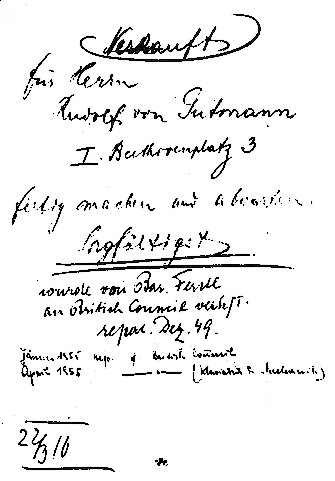 Verkauft
für Herrn
Rudolf von Gutmann
I. Beethovenplatz 3
fertig machen und abwarten.
Sorgfältigst
wurde von Bar. Ferstl
an British Council verkft.
repar. Dez. 49.
Jänner 1955 rep. British Council
April 1955 — " — (Klaviatur &
22/3 10